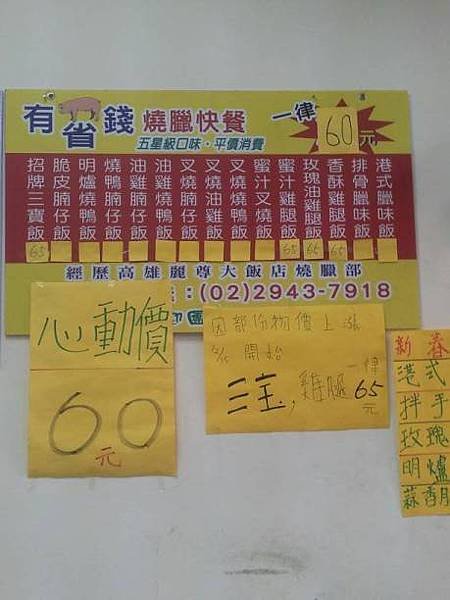 有省錢 燒臘快餐
五星級口味·平價消費
一律60元
招牌三寶飯 65
脆皮腩仔飯
明爐燒鴨飯
燒鴨腩仔飯
油雞腩仔飯
油雞燒鴨飯
叉燒腩仔飯
叉燒油雞飯
叉燒燒鴨飯
蜜汁叉燒飯
蜜汁雞腿飯 65
玫瑰油雞腿飯 65
香酥雞腿飯 65
排骨臘味飯
港式臘味飯
經歷高雄麗尊大飯店燒臘部
:(02)2943-7918
心動價
60元
因部份物價上漲
開始
三宝.,雞腿一律65元
新春
港式
拌手
玫瑰
明爐
蒜香